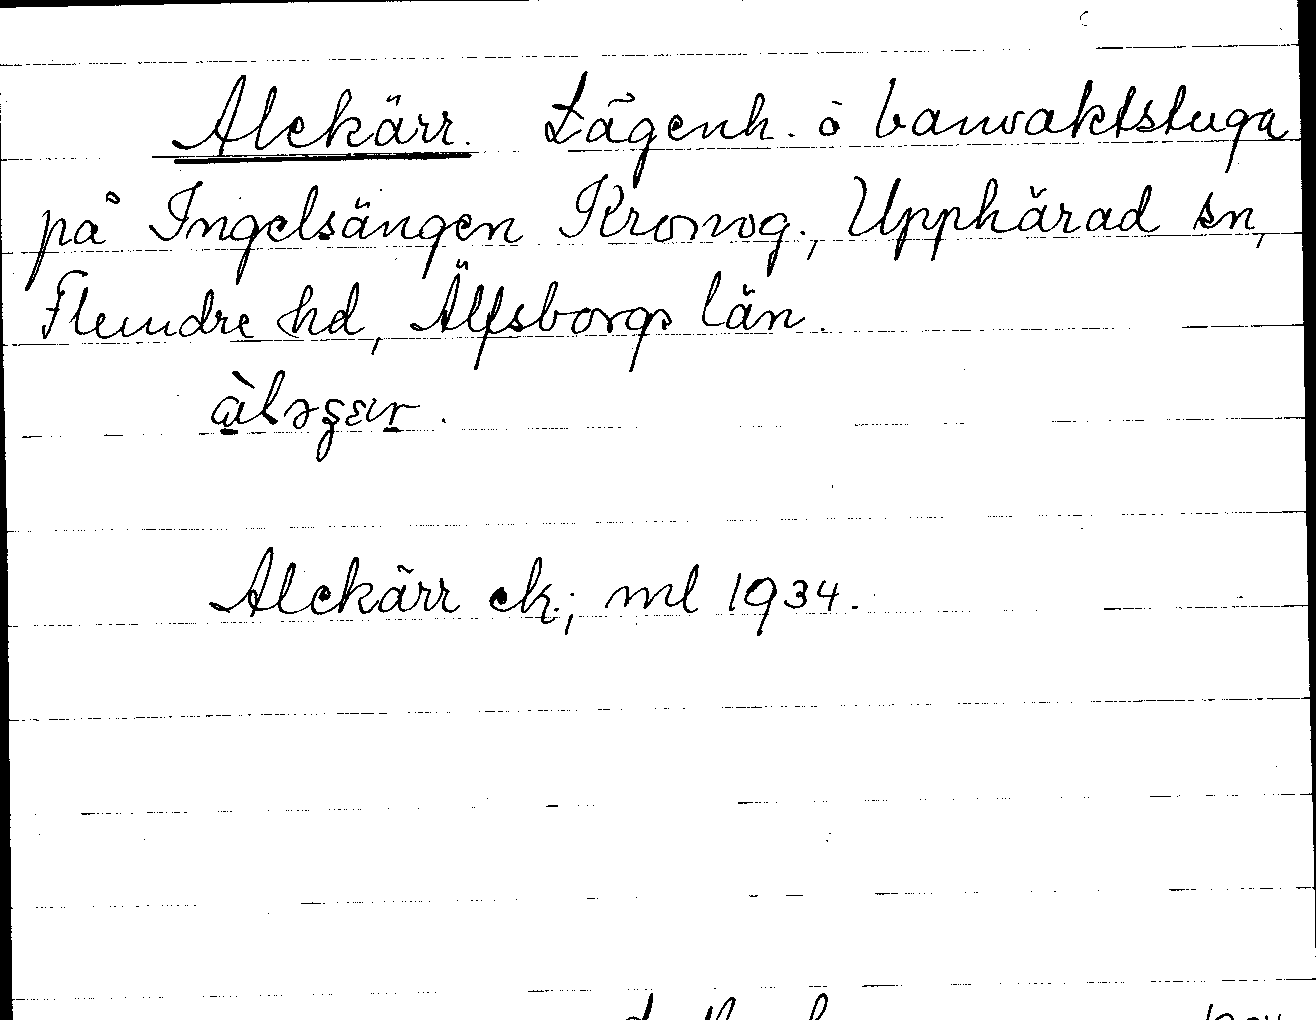 Alekärr. Lägenh. o banvaktstuga
på Ingelsängen Kronog., Upphärad sn,
Flundre hd, Älfsborgs län.
Alekärr ek.; ml 1934.